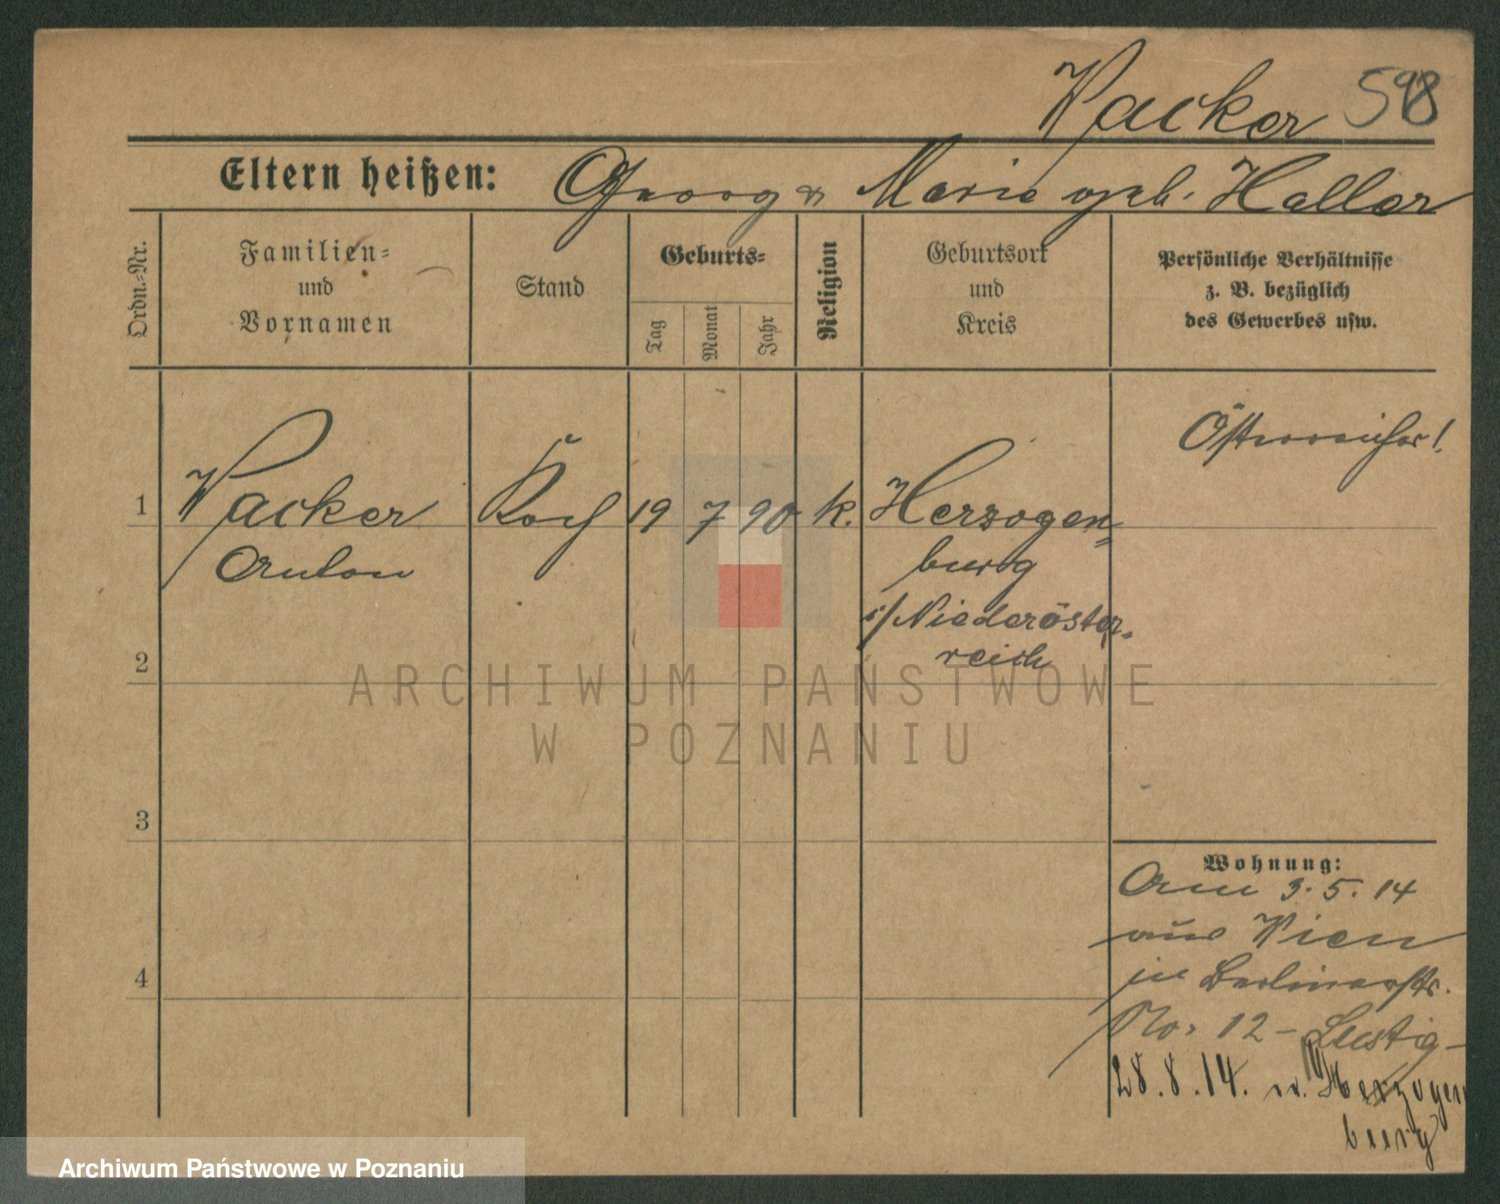 Wacker 598
Eltern heißen: Georg & Marie geb. Haller
Ordn.-Nr.
Familien-
und
Vornamen
Stand
Geburts-
Tag
Monat
Jahr
Religion
Geburtsort
und
Kreis
Persönliche Verhältnisse
z. B. bezüglich
des Gewerbes usw.
Österreicher!
1 Wacker Koch 19 7 90 k. Herzogen-
Anton burg
i/Niederöster-
reich
2
ARCHIWUM PAŃSTWOWE
W POZNANIU
3
Wohnung:
Am 3.5.14
aus Wien
in Berlinerstr.
No. 12 - Lustig -
4
28.8.14. n. Herzogen
burg
Archiwum Państwowe w Poznaniu